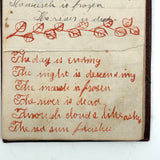 is frozen
The day is ending
The night is descending
The marsh is frozen
The river is dead
Through clouds like ash
The red sun flashes